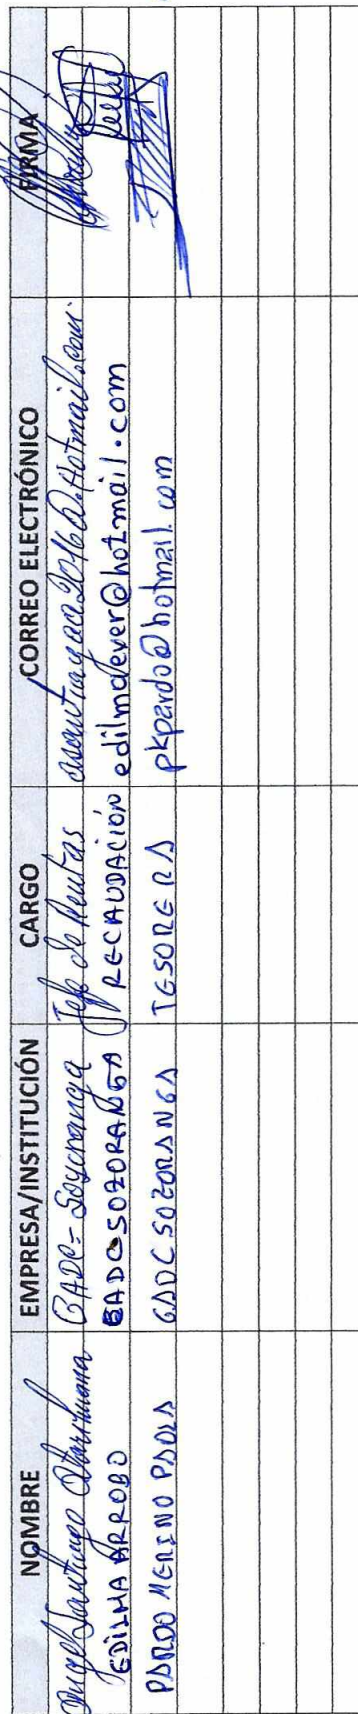 NOMBRE EMPRESA/INSTITUCIÓN CARGO CORREO ELECTRÓNICO FIRMA
Angel Santiago GADC-Sozoranga Jefe de Rentas
EDILMA ARROBO GADC SOZORANGA RECAUDACIÓN edilmalever@hotmail.com
PARDO MERINO PAOLA GADC SOZORANGA TESORERA pkpardo@hotmail.com